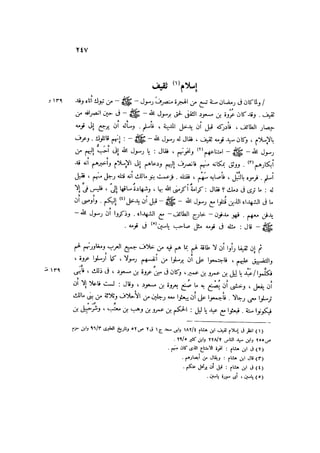 ٢٤٧
إسلام (١) ثقيف
/ ولما كان فى رمضان سنة تسع من الهجرة منصرف رسول - ﷺ - من تبوك أتاه وفد
ص ١٣٩
ثقيف . وقد كان عروة بن مسعود الثقفى لحق برسول الله - ﷺ - فى حين انصرافه من
حصار الطائف ، فأدركه قبل أن يدخل المدينة ، فأسلم . وسأله أن يرجع إلى قومه
بالإسلام ، وكان سيد قومه ثقيف ، فقال له رسول الله - ﷺ - : إنهم قاتلوك . وعرف
رسول الله - ﷺ - امتناعهم (٢) ونخوتهم ، فقال : يا رسول الله إنى أحب إليهم من
أبكارهم (٣) . ووثق بمكانه منهم فانصرف إليهم ودعاهم إلى الإسلام وأخبرهم أنه قد
أسلم. فرموه بالنبل ، فأصابه سهم ، فقتله . فزعمت بنو مالك أنه قتله رجل منهم ، فقيل
له : ما ترى فى دمك ؟ فقال : كرامة أكرمنى الله بها ، وشهادة ساقها إلى ، فليس فى إلا
ما فى الشهداء الذين قتلوا مع رسول الله - ﷺ - قبل أن يدخل (٤) إليكم . وأوصى أن
يدفن معهم . فهو مدفون - خارج الطائف - مع الشهداء. وذكروا أن رسول الله -
ﷺ - قال : مثله فى قومه مثل صاحب ياسين (٥) فى قومه .
ثم إن ثقيفا رأوا أن لا طاقة لهم بما هم فيه من خلاف جميع العرب ومغاورتهم لهم
والتضييق عليهم ، فاجتمعوا على أن يرسلوا من أنفسهم رسولا ، كما أرسلوا عروة ،
فكلموا / عبد يا ليل بن عمرو بن عمير ، وكان فى سن عروة بن مسعود ، فى ذلك ، فأبى
ص ١٣٩
أن يفعل ، وخشى أن يصنع به ما صنع بعروة بن مسعود ، وقال : لست فاعلا إلا أن
ترسلوا معى رجالا. فأجمعوا على أن يبعثوا معه رجلين من الأحلاف وثلاثة من بنى مالك
فيكونوا ستة . فبعثوا مع عبد يا ليل : الحكم بن عمرو بن وهب بن معتب ، وشرحبيل بن
(١) انظر فى إسلام ثقيف ابن هشام ١٨٢/٤ وابن سعد ج١ ق٢ ص٥٢ وتاريخ الطبرى ٩٦/٣ وابن حزم
ص٢٥٥ وابن سيد الناس ٢٢٨/٢ وابن كثير ٢٩/٥ .
(٢) فى ابن هشام : نخوة الامتناع الذى كان منهم .
(٣) قال ابن هشام : ويقال من أبصارهم .
(٤) فى ابن هشام : قبل أن يرتحل عنكم .
(٥) ياسين ، أى سورة ياسين .